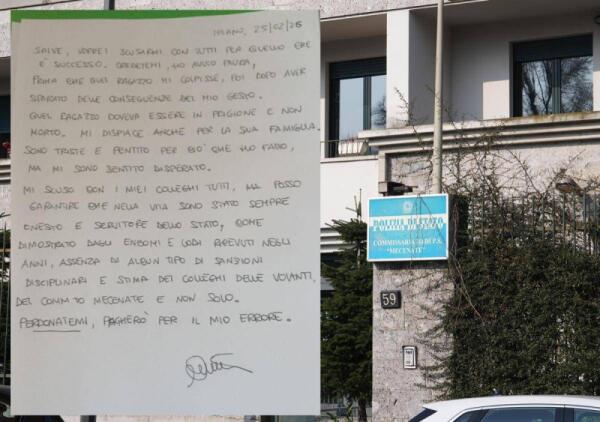 MILANO, 25/02/26
SALVE, VORREI SCUSARMI CON TUTTI PER QUELLO CHE
È SUCCESSO. CREDETEMI, HO AVUTO PAURA,
PRIMA CHE QUEL RAGAZZO MI COLPISSE, POI DOPO AVER
SPARATO DELLE CONSEGUENZE DEL MIO GESTO.
QUEL RAGAZZO DOVEVA ESSERE IN PRIGIONE E NON
MORTO. MI DISPIACE ANCHE PER LA SUA FAMIGLIA.
SONO TRISTE E PENTITO PER CIO' CHE HO FATTO,
MA MI SONO SENTITO DISPERATO.
MI SCUSO CON I MIEI COLLEGHI TUTTI, MA POSSO
GARANTIRE CHE NELLA VITA SONO STATO SEMPRE
ONESTO E SERVITORE DELLO STATO, COME
DIMOSTRATO DAGLI ENCOMI E LODI RICEVUTI NEGLI
ANNI, ASSENZA DI ALCUN TIPO DI SANZIONI
DISCIPLINARI E STIMA DEI COLLEGHI DELLE VOLANTI,
DEL COMM.TO MECENATE E NON SOLO.
PERDONATEMI, PAGHERÒ PER IL MIO ERRORE.
POLIZIA DI STATO
COMMISSARIATO DI P.S.
"MECENATE"
59